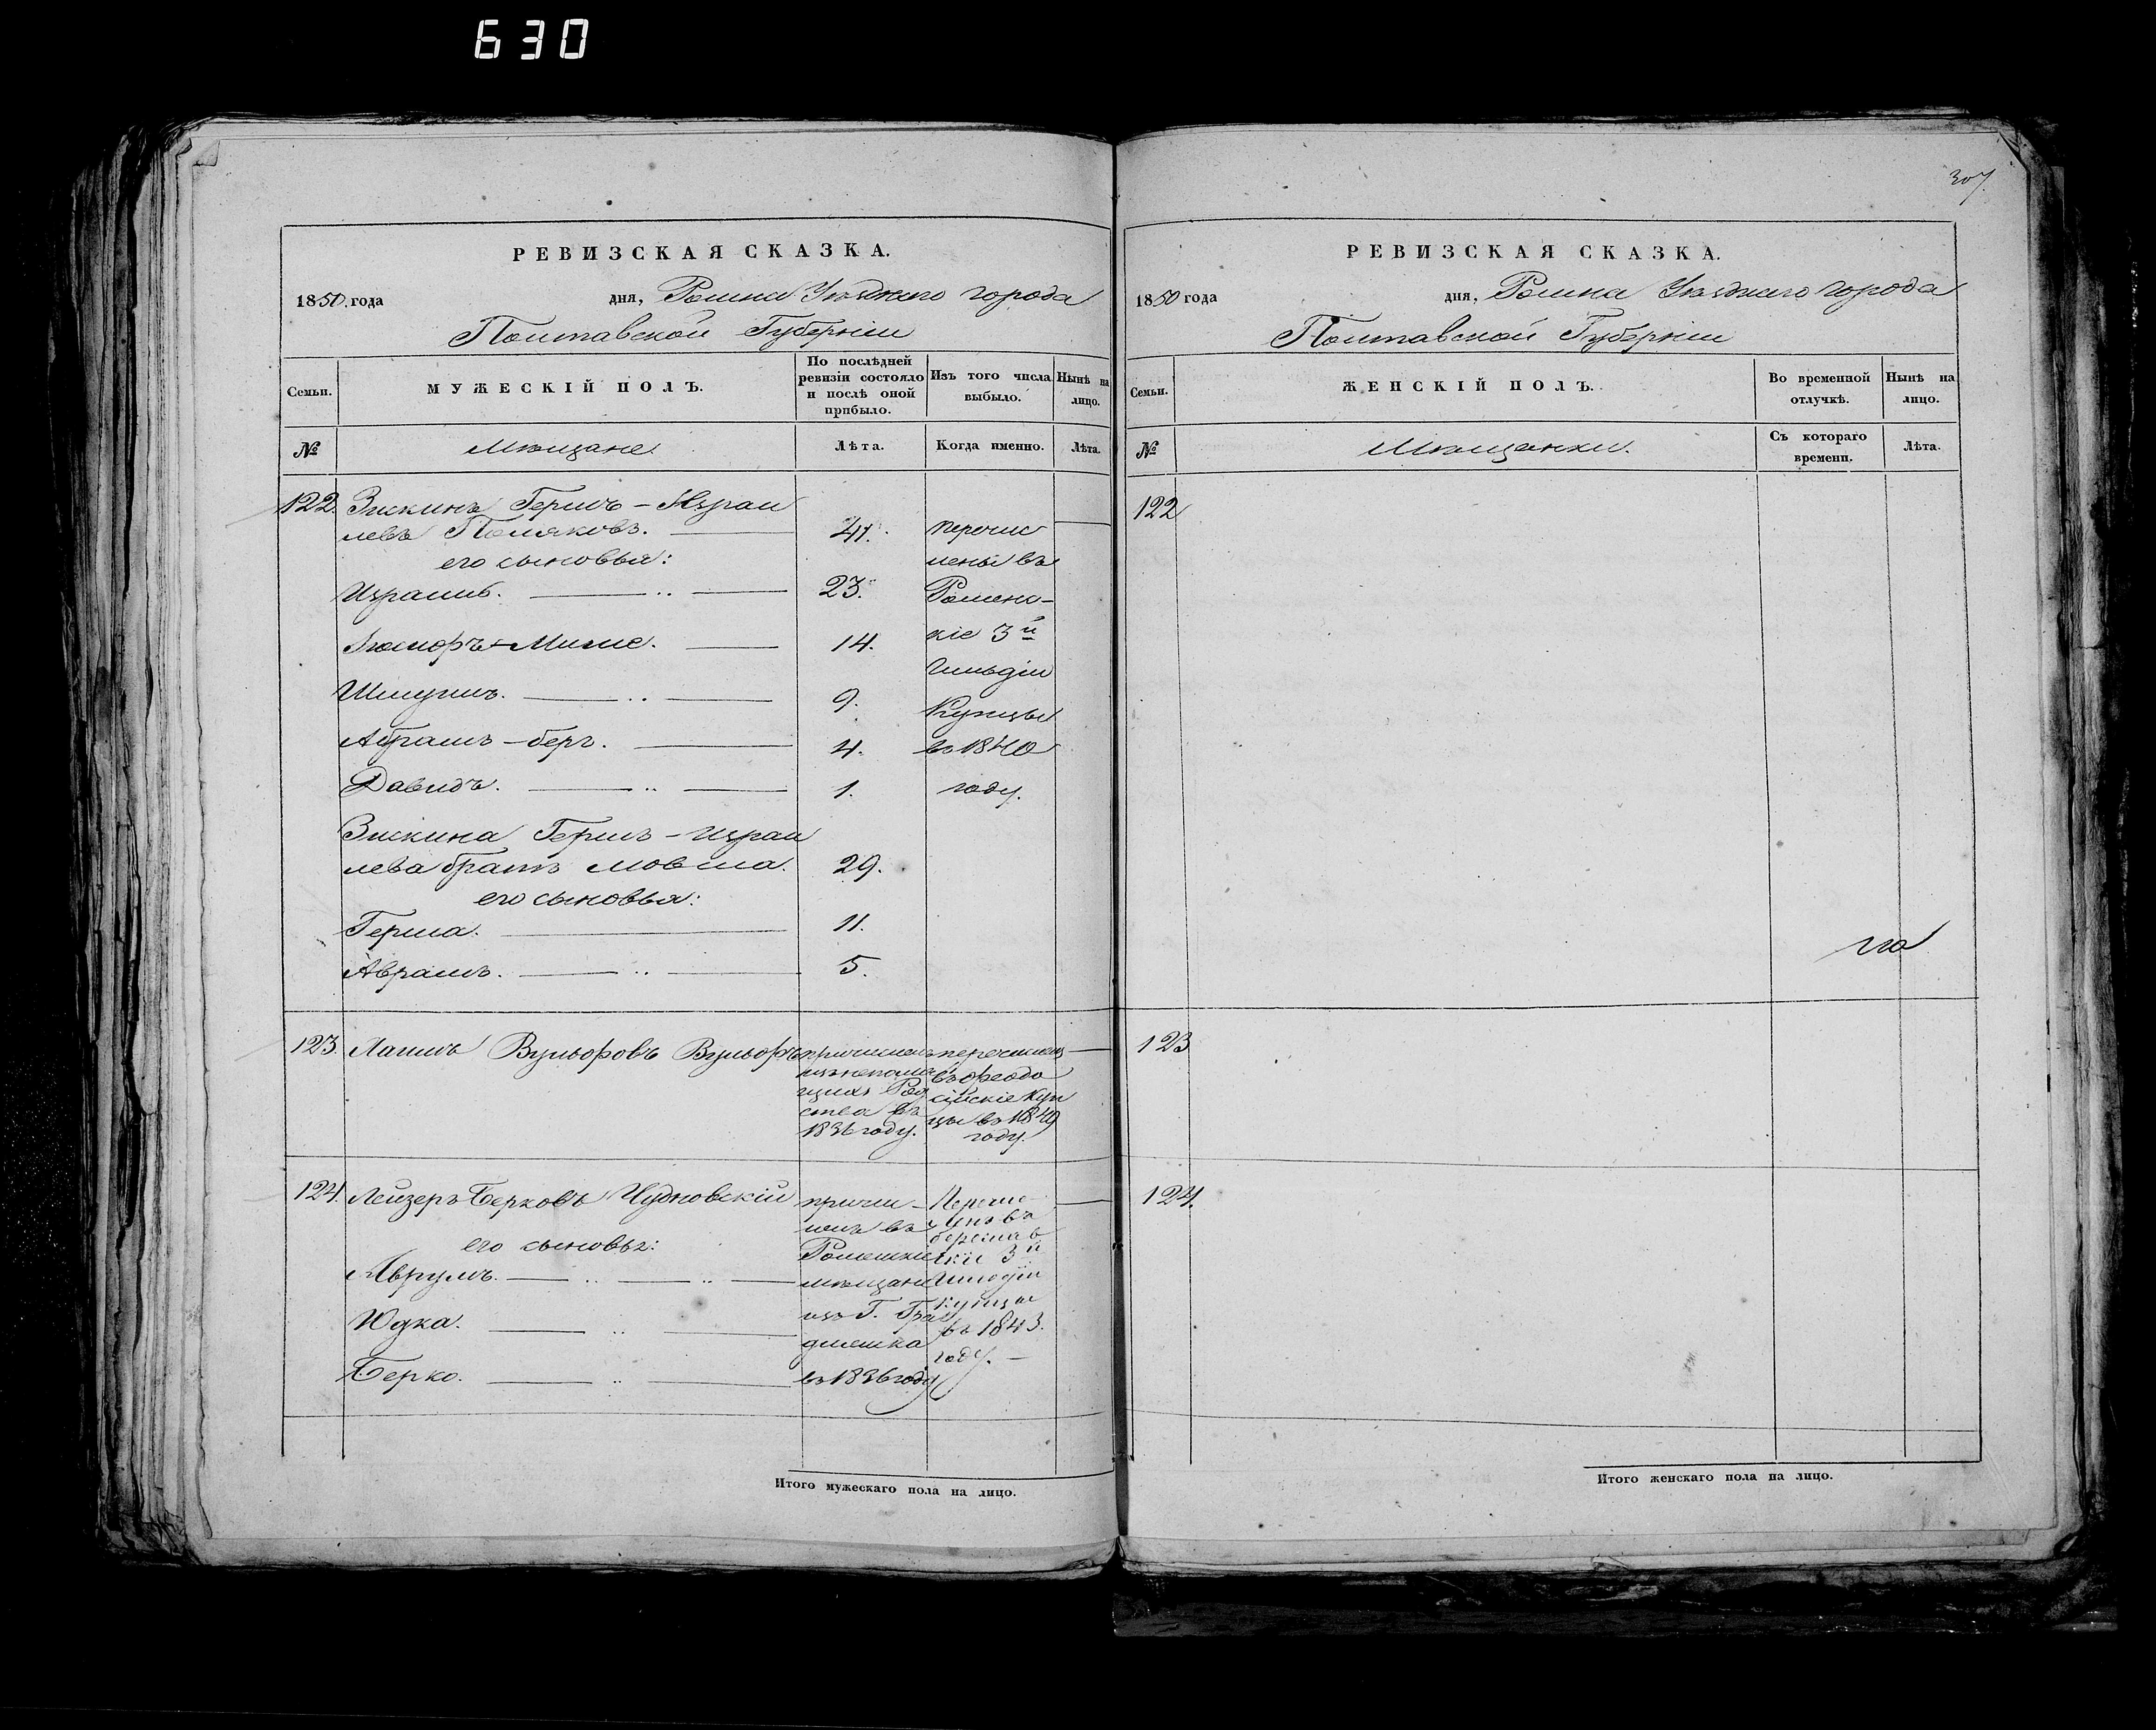 630
307
РЕВИЗСКАЯ СКАЗКА.
1850 года дня, Ромна Уѣзднаго города
Полтавской Губерніи
Семьи.
МУЖЕСКІЙ ПОЛЪ.
По послѣдней ревизіи состояло и послѣ оной прибыло.
Изъ того числа выбыло.
Нынѣ на лицо.
№
Мѣщане
Лѣта.
Когда именно.
Лѣта.
122. Зискинъ Гершъ-Израи
левъ Поляковъ. 41.
его сыновья:
Израиль. 23.
14.
Шмуилъ. 9.
Абрамъ-беръ. 4.
Давидъ. 1.
перечис
лены въ
Роменс-
кіе 3й
Гильдіи
Купцы
въ 1840
году.
Зискина Гершъ-Израи
лева братъ Мовша. 29.
его сыновья:
Герша. 11.
Аврамъ. 5.
123. Вульфовъ Вульфъ
причисленъ
Род
ства въ
1836 году.
перечисленъ
въ Феодо
сійскіе куп
цы въ 1849
году.
124. Лейзеръ Берковъ Чудновскій
его сыновья:
Аврумъ.
Юдка.
Берко.
причи-
ленъ въ
Роменскіе
мѣщане
изъ Г. Гра
дижска
въ 1836 году
Перечис
ленъ въ
3й
Гильдіи
купцы
въ 1843.
году.
Итого мужескаго пола на лицо.
РЕВИЗСКАЯ СКАЗКА.
1850 года дня, Ромна Уѣзднаго города
Полтавской Губерніи
Семьи.
ЖЕНСКІЙ ПОЛЪ.
Во временной отлучкѣ.
Нынѣ на лицо.
№
Мѣщанки.
Съ котораго времени.
Лѣта.
122
123
124.
Итого женскаго пола на лицо.